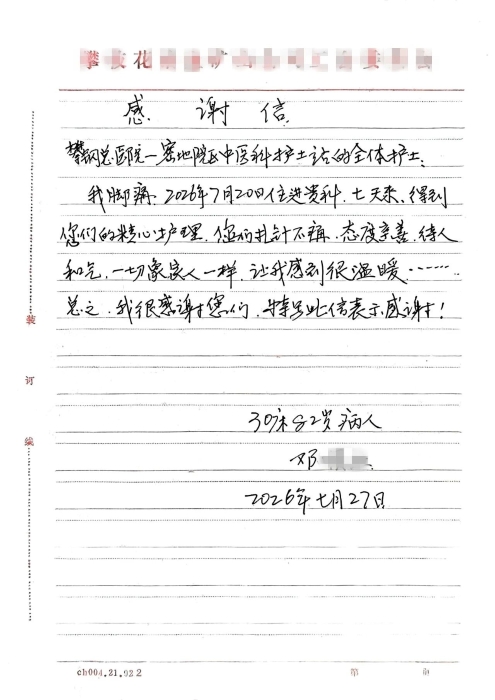 攀枝花
感 谢 信
攀钢总医院一密地院区中医科护士站的全体护士:
我脚痛、2026年7月20日住进贵科,七天来,得到
您们的精心护理,您们扎针不痛,态度亲善,待人
和气,一切象家人一样,让我感到很温暖……
总之,我很感谢您们,特写此信表示感谢!
30床82岁病人
邓
2026年七月27日
装
订
编
ch004.21.922 第 页